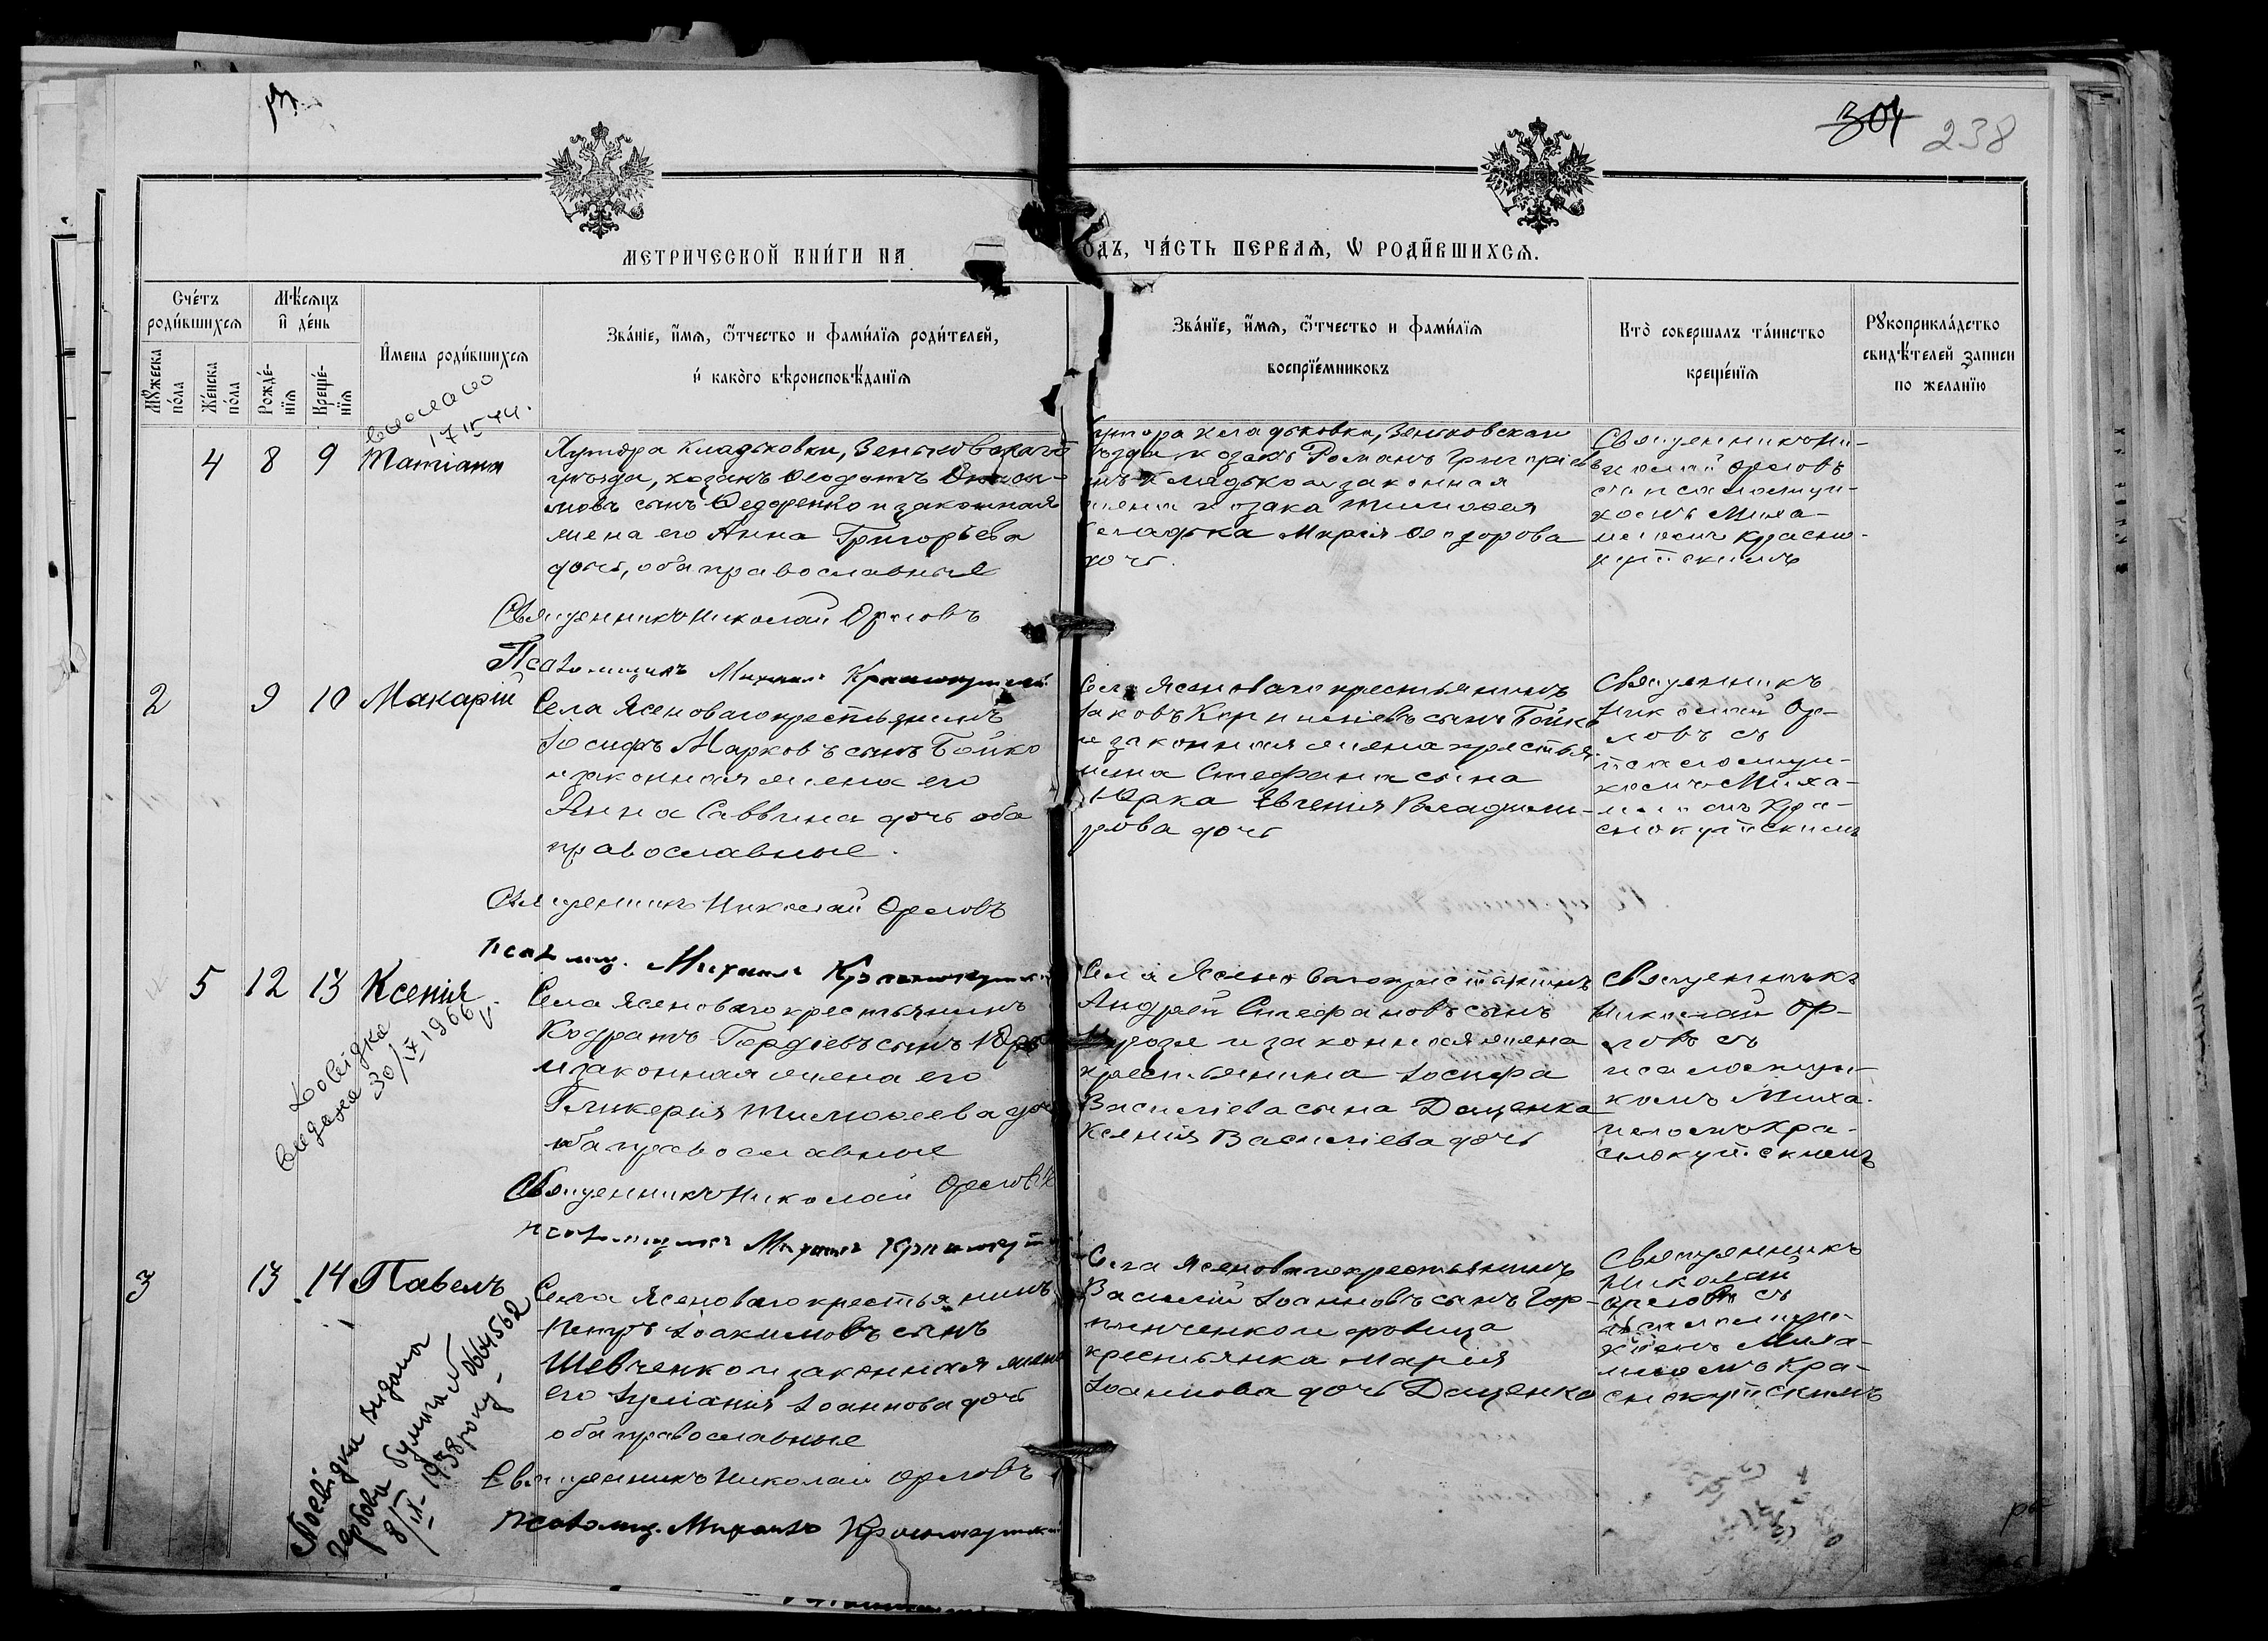 304 238
МЕТРИЧЕСКОЙ КНИ́ГИ НА ОДЪ, ЧА́СТЬ ПЕРВАѦ, Ѡ РОДИ́ВШИХСѦ.
Сче́тъ роди́вшихсѧ
Мꙋ́жеска по́ла
Же́нска по́ла
Мѣ́сѧцъ и҆ де́нь
Рожде́-нїѧ
Креще́-нїѧ
И҆́мена роди́вшихсѧ
Зва́нїе, и҆́мѧ, ѻ҆́тчество и фами́лїѧ роди́телей,
и҆ како́го вѣроисповѣ́данїѧ
Зва́нїе, и҆́мѧ, ѻ҆́тчество и фами́лїѧ
воспрїе́мниковъ
Кто̀ соверша́лъ та́инство
креще́нїѧ
Рꙋкоприкла́дство
свидѣ́телей записи
по жела́нїю
выслано
17 44.
4 8 9 Татіана
Хутора Кладьковки, Зеньковскаго
уѣзда, козакъ Ѳеодотъ
мовъ сынъ Федоренко и законная
жена его Анна Григорьева
дочь, оба православные
Священникъ Николай Орловъ
Псаломщикъ Михаилъ Краснокутскій
хутора Кладьковки, Зеньковскаго
уѣзда козакъ Романъ Григорьевъ
Кладько и законная
жена козака Тимоѳея
Кладька Марія Ѳеодорова
дочь.
Священникъ Ни-
колай Орловъ
съ псаломщи-
комъ Миха-
иломъ Красно-
кутскимъ
2 9 10 Макарій
Села Ясеноваго крестьянинъ
Іосифъ Марковъ сынъ Бойко
и законная жена его
Анна Саввина дочь оба
православные.
Священникъ Николай Орловъ
Псаломщ. Михаилъ Краснокутскій
Села Ясеноваго крестьянинъ
Іаковъ Корниліевъ сынъ Бойко
и законная жена крестья-
нина Стефана сына
Юрка Евгенія Владими-
рова дочь
Священникъ
Николай Ор-
ловъ съ
псаломщи-
комъ Миха-
иломъ Кра-
снокутскимъ
5 12 13 Ксенія
Довідка
видана 30/IX 1966
Села Ясеноваго крестьянинъ
Кодратъ Гордіевъ сынъ
и законная жена его
Гликерія Тимоѳеева дочь
оба православные
Священникъ Николай Орловъ
Псаломщикъ Михаилъ Краснокутскій
Села Ясеноваго крестьянинъ
Андрей Стефановъ сынъ
и законная жена
крестьянина Іосифа
Василіева сына Даценка
Ксенія Василіева дочь
Священникъ
Николай Ор-
ловъ съ
псаломщи-
комъ Миха-
иломъ Кра-
снокутскимъ
3 13 14 Павелъ
Довідка видана
гербова бумага № 0664562
8/IX-1938 року-
Села Ясеноваго крестьянинъ
Петръ Іоакимовъ сынъ
Шевченко и законная жена
его Іуліанія Іоаннова дочь
оба православные
Священникъ Николай Орловъ
Псаломщ. Михаилъ Краснокутскій
Села Ясеноваго крестьянинъ
Василій Іоанновъ сынъ Гор-
пинченко и дѣвица
крестьянка Марія
Іоаннова дочь Даценко
Священникъ
Николай
Орловъ съ
псаломщи-
комъ Миха-
иломъ Кра-
снокутскимъ